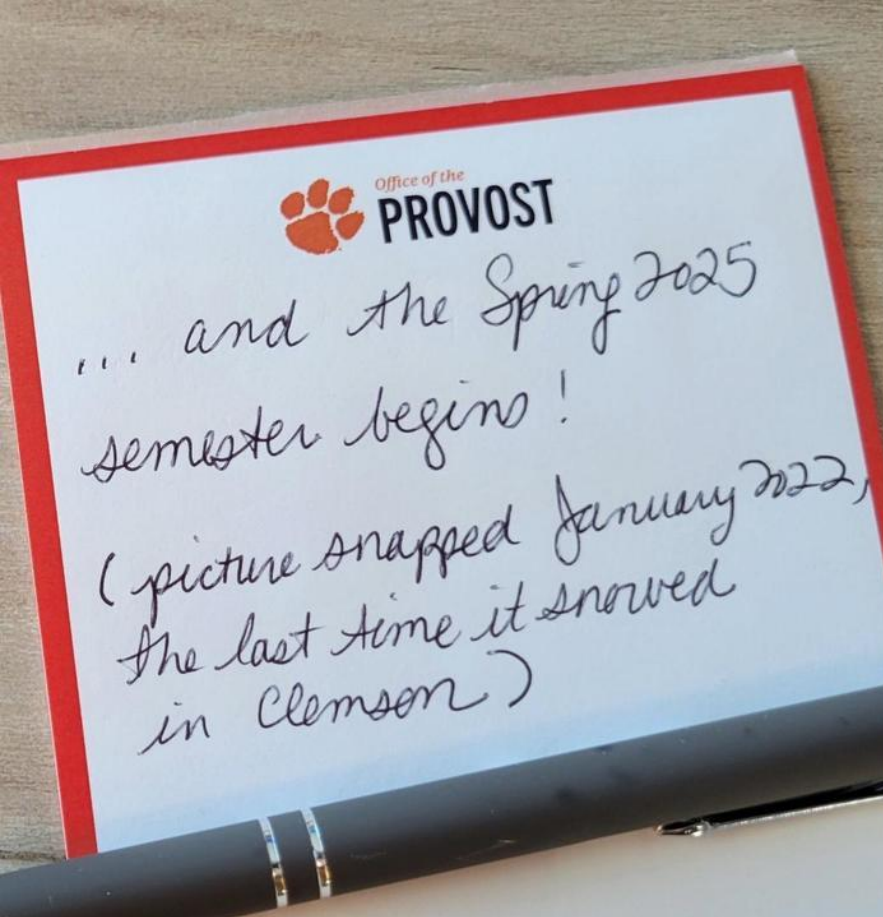 Office of the
PROVOST
... and the Spring 2025
semester begins!
(picture snapped January 2022,
the last time it snowed
in Clemson)